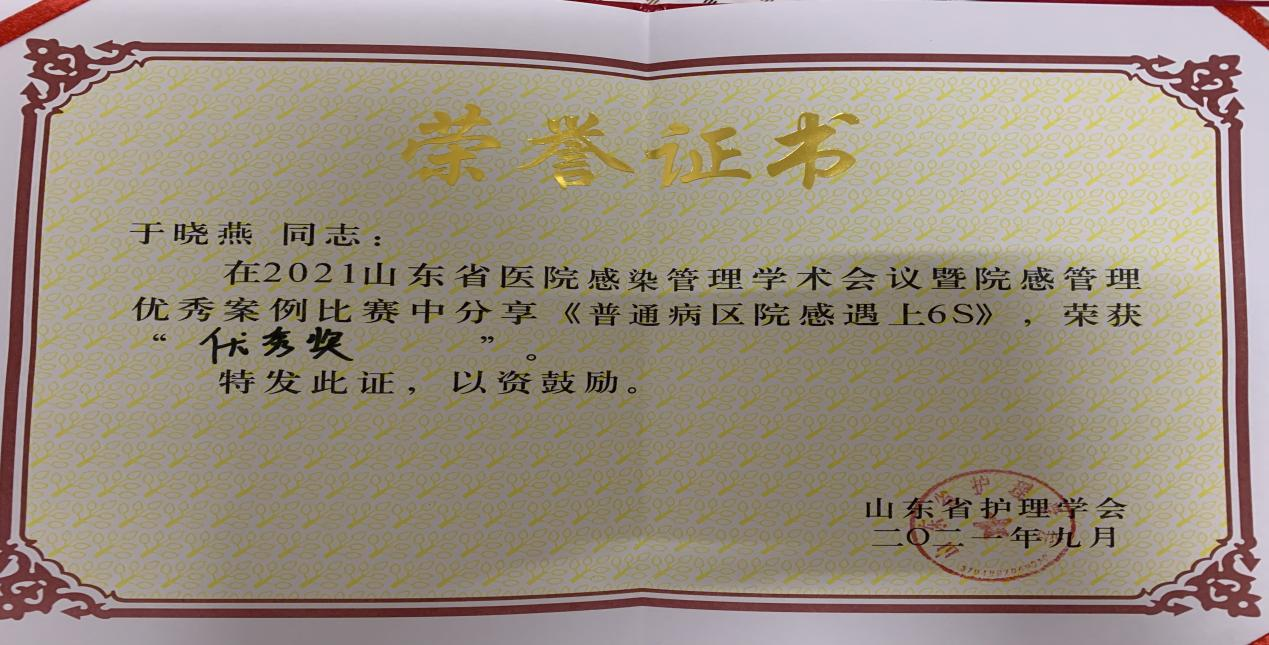 荣誉证书
于晓燕 同志：
在2021山东省医院感染管理学术会议暨院感管理
优秀案例比赛中分享《普通病区院感遇上6S》，荣获
“ 优秀奖 ”。
特发此证，以资鼓励。
山东省护理学会
二〇二一年九月